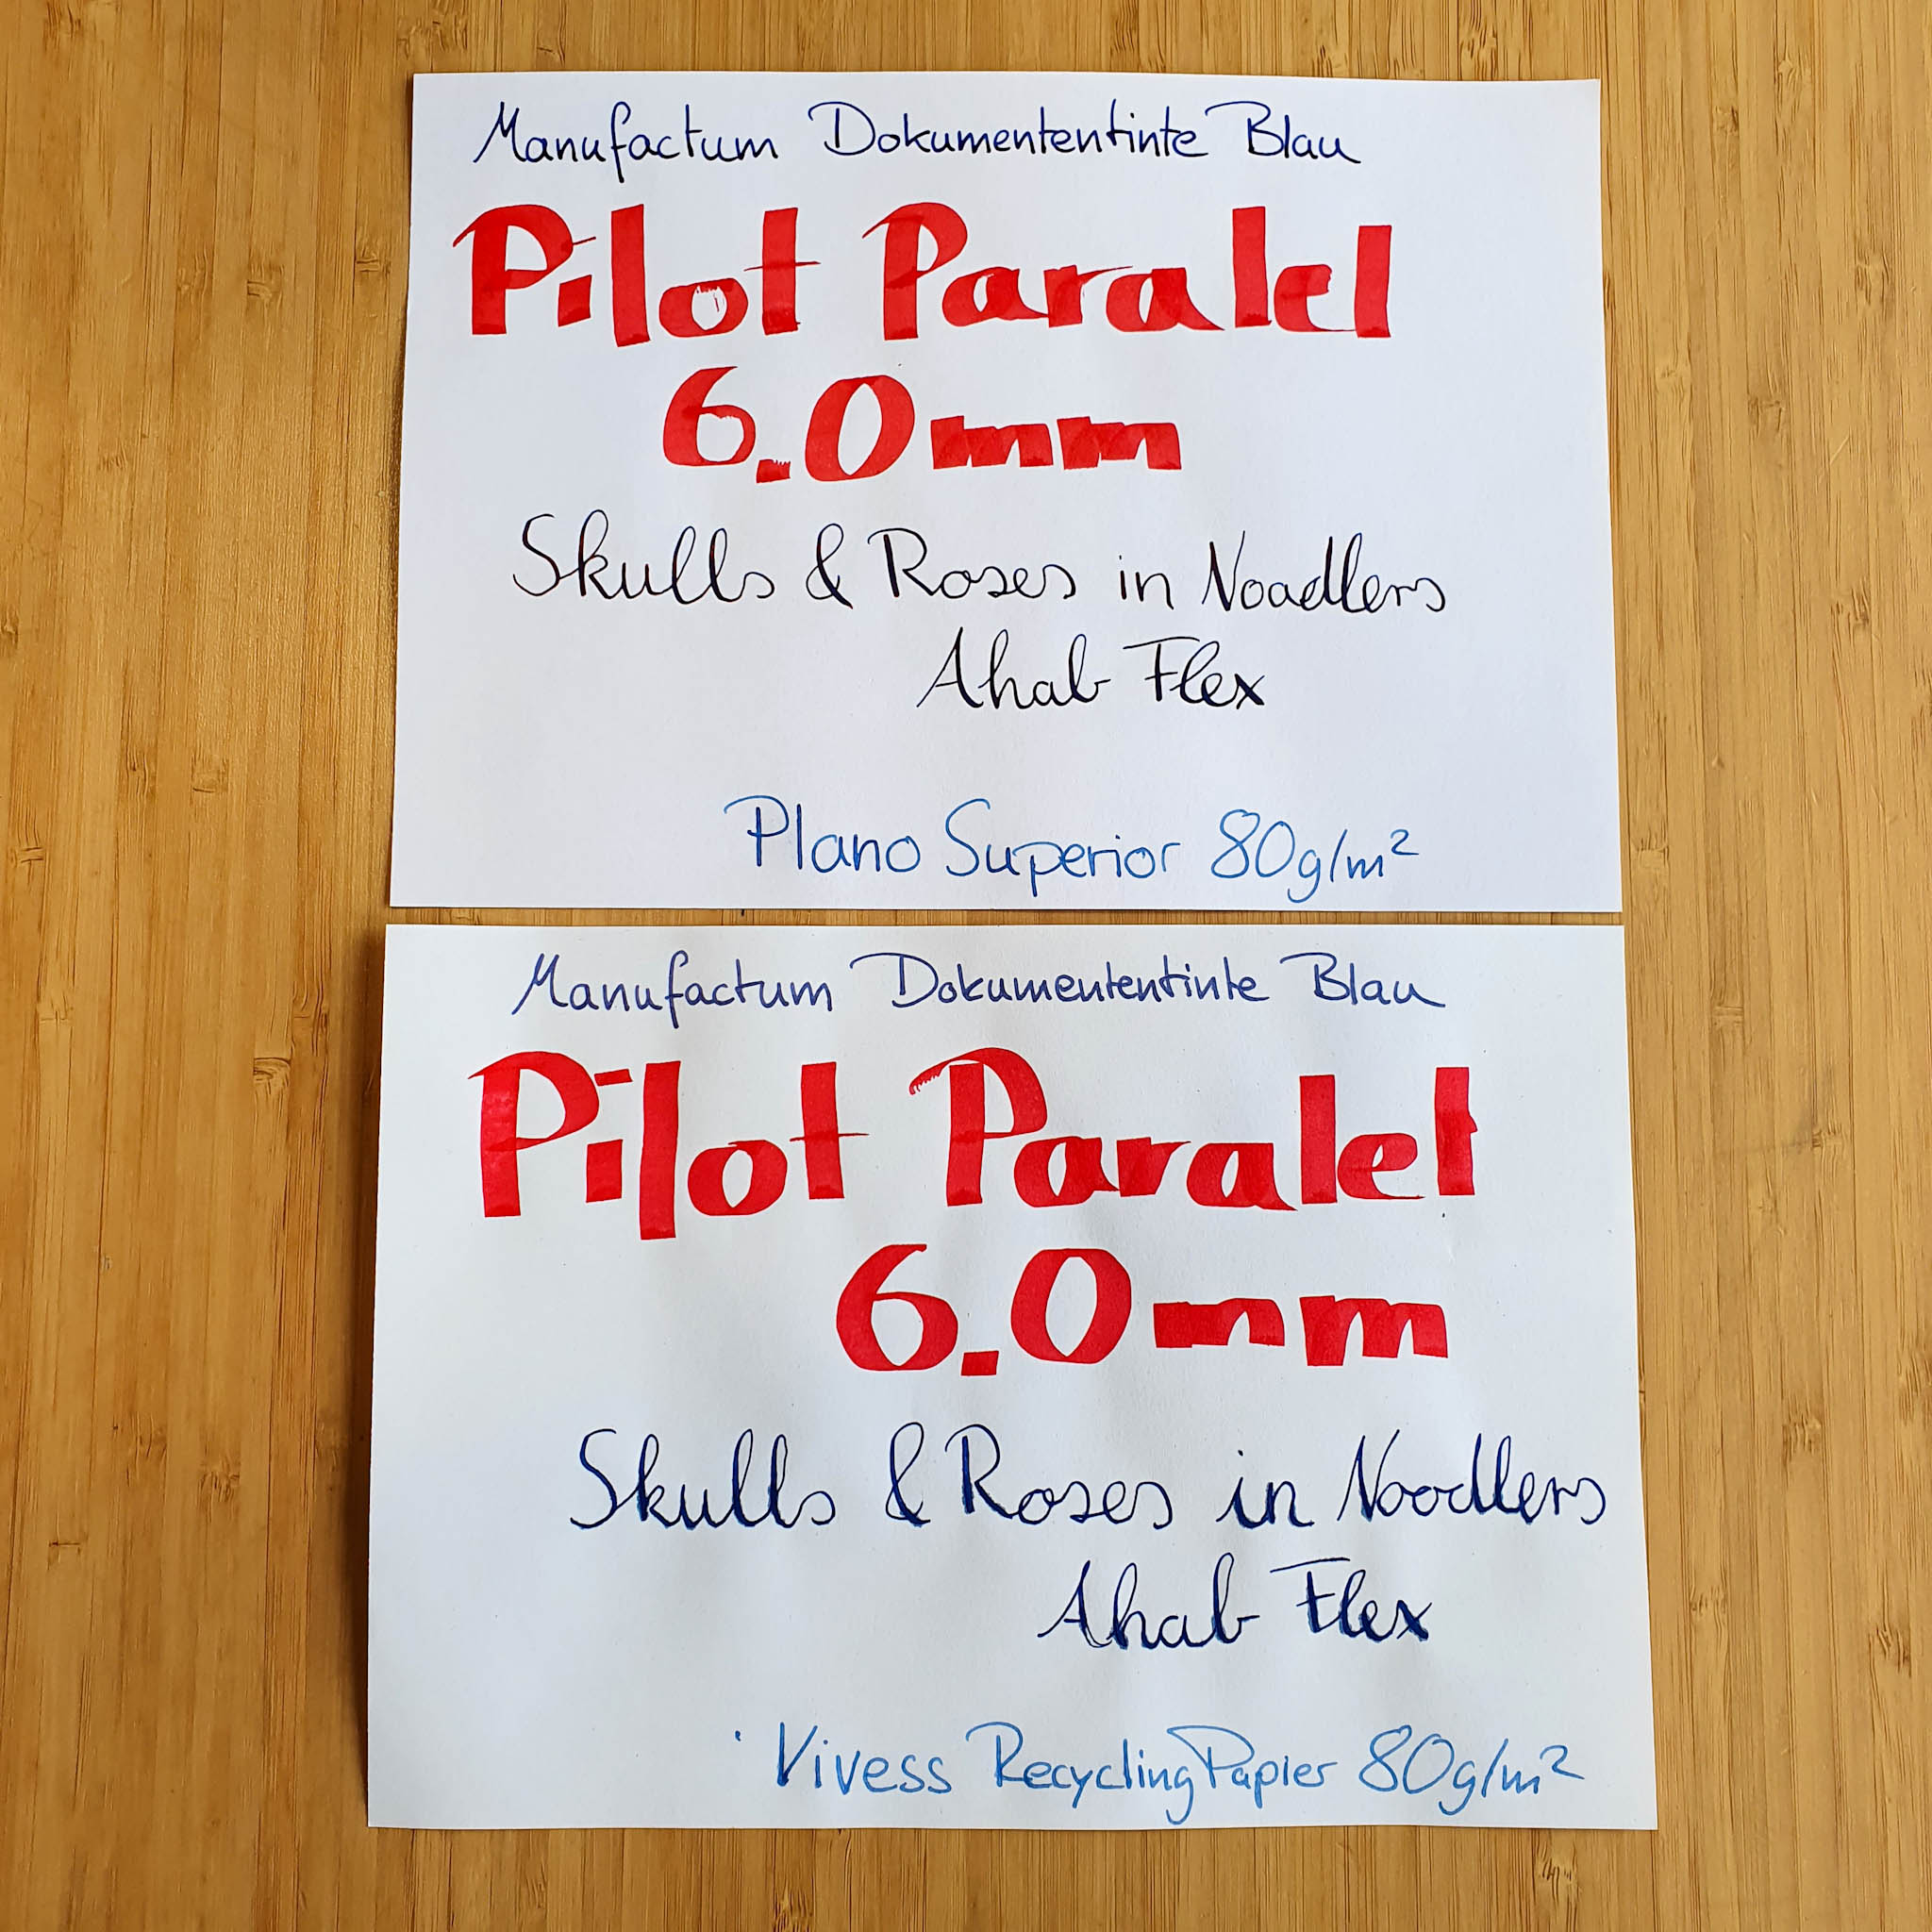 Manufactum Dokumententinte Blau
Pilot Paralel
6.0mm
Skulls & Roses in Noodlers
Ahab Flex
Plano Superior 80g/m²
Manufactum Dokumententinte Blau
Pilot Paralel
6.0mm
Skulls & Roses in Noodlers
Ahab Flex
Vivess Recycling Papier 80g/m²